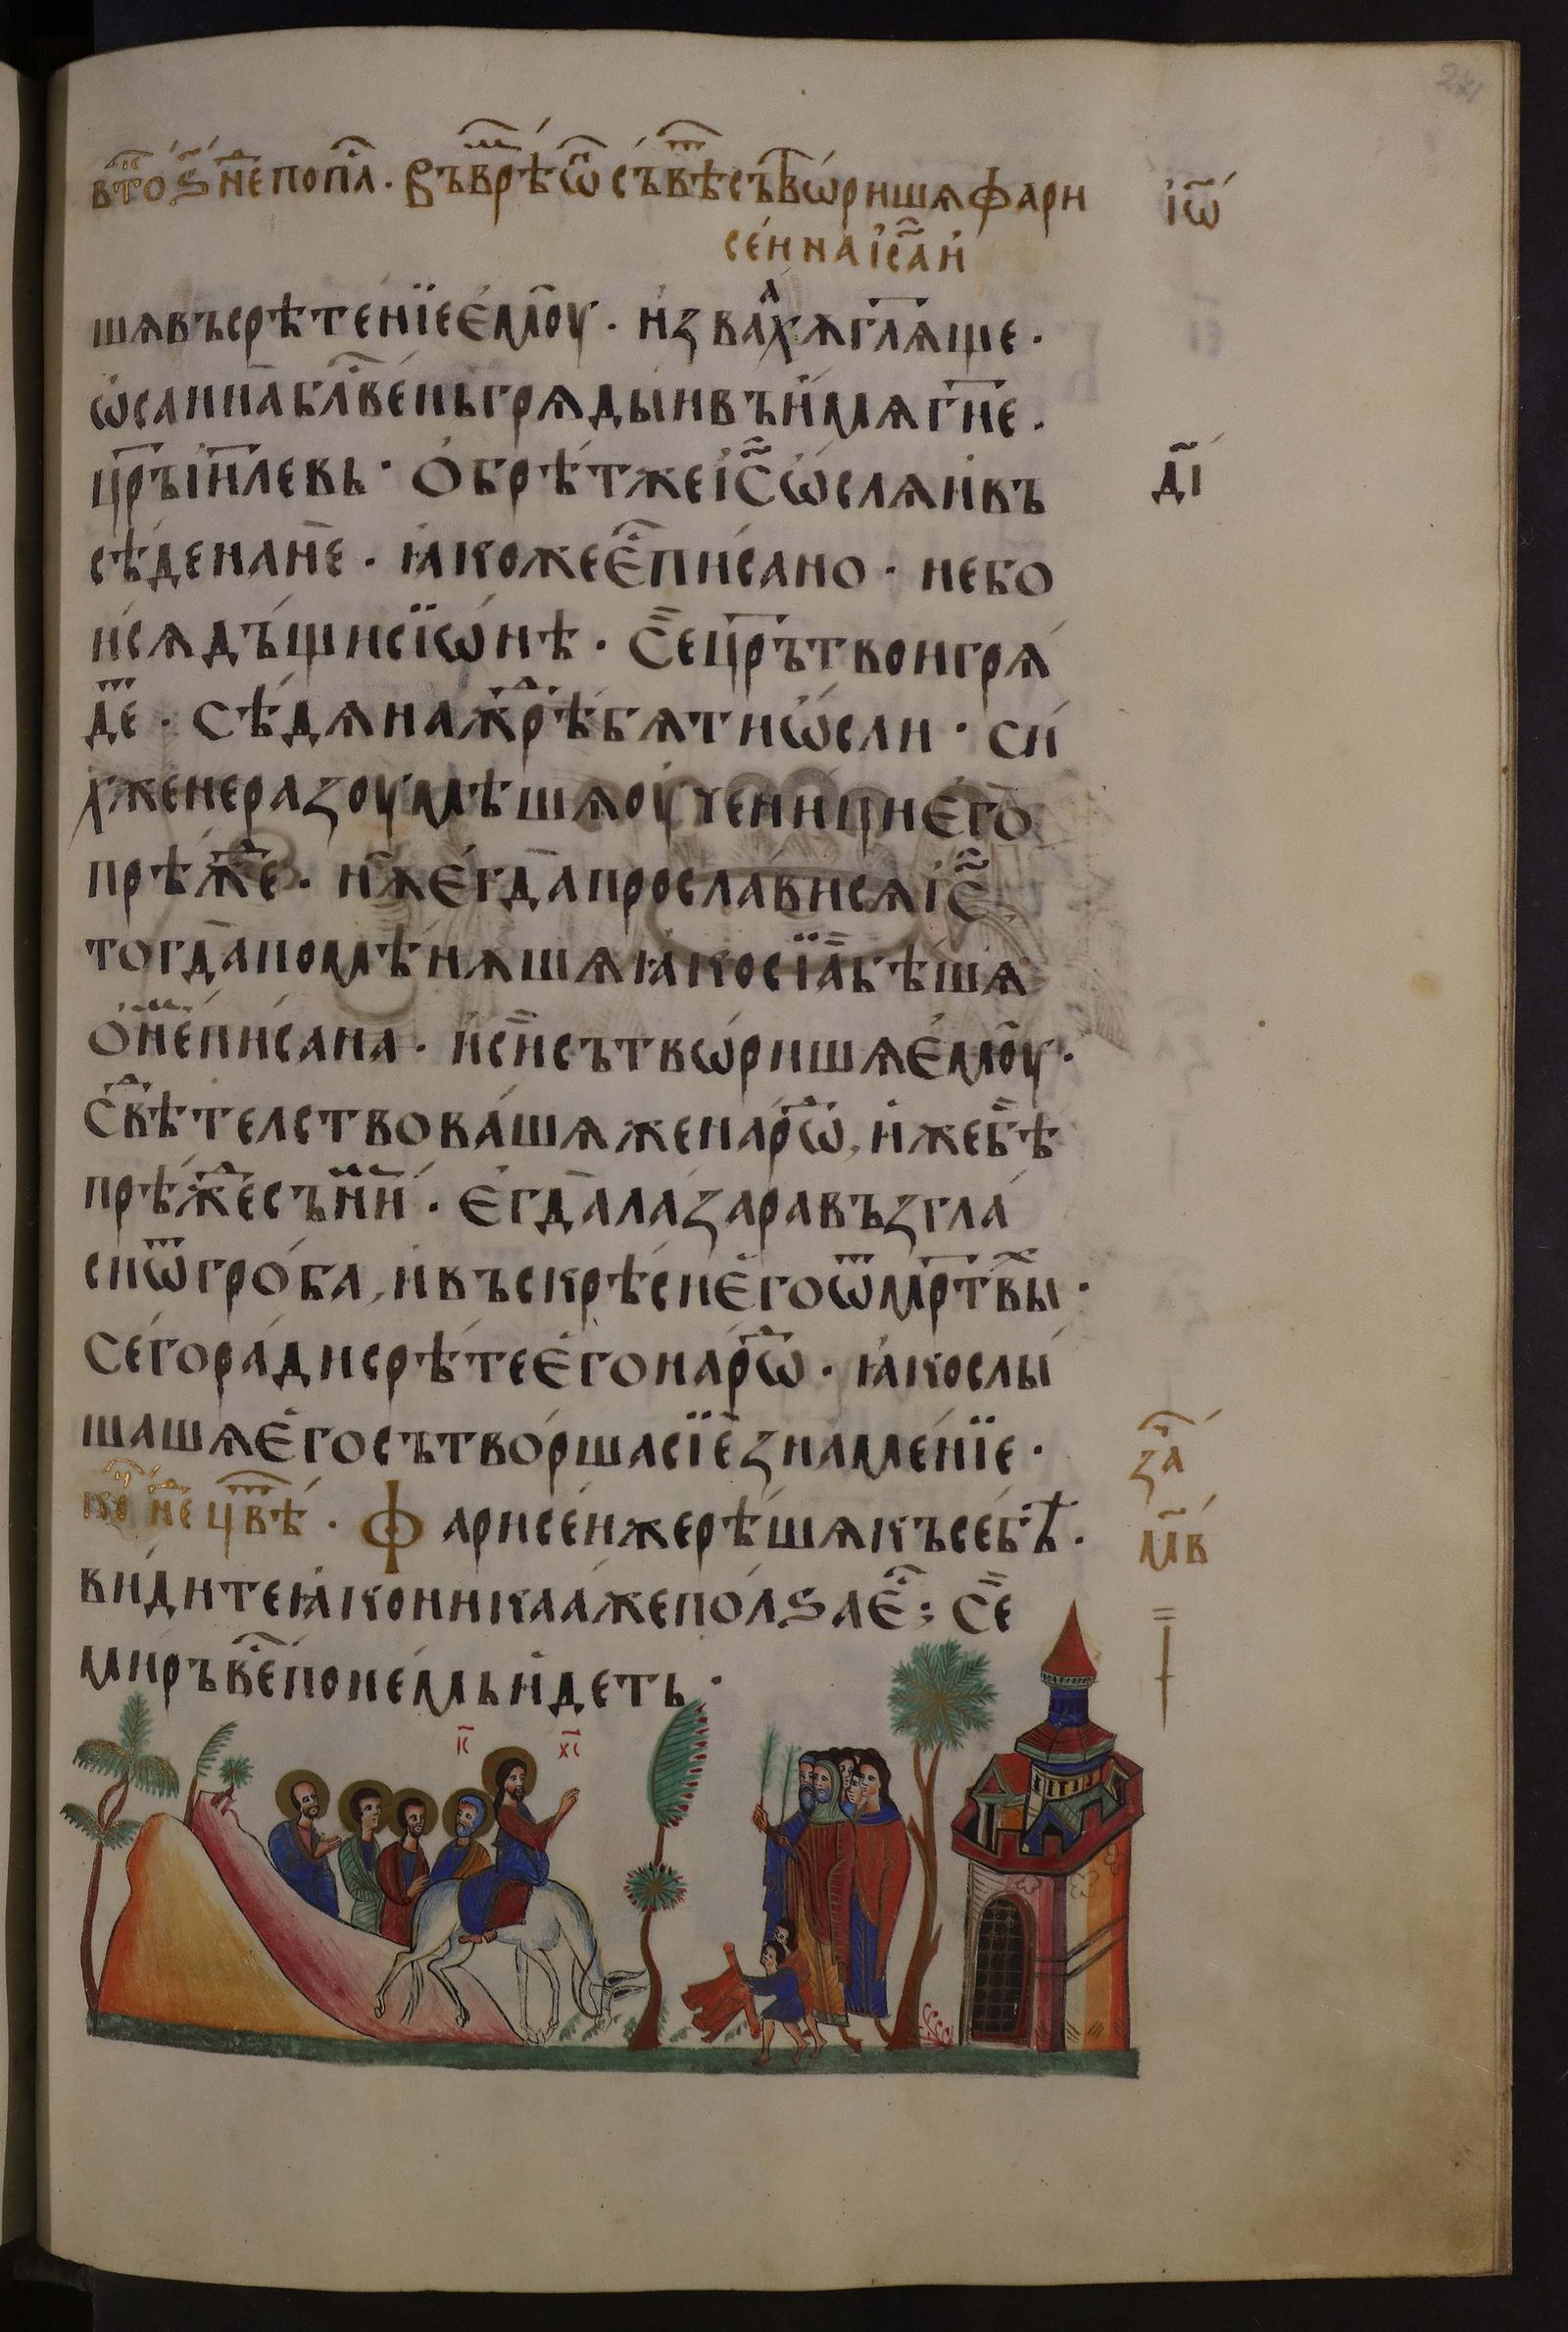 вт҃о ѕ҃ не попⷧ҇а · Въ врѣⷨ ѿ съвѣⷮ сътвѡришѧ фари
і҆ѡ҃
сеи на і҆с҃а и҆
шѧ въ срѣтенїе є҆моу · и҆ зваⷯхѫ гл҃ѧще ·
ѡ҆санна блв҃енъ грѧдыи въ и҆мѧ гн҃е ·
цр҃ъ і҆и҃левь · О҆брѣт же і҆с҃ ѡ҆слѧ и҆ въ
д҃і
сѣде на не · ꙗ҆коже є҆ⷭ҇ писано · не бо
исѧ дъщи сїѡнѣ · Се цр҃ъ твои грѧ
деⷮ · Сѣдѧ на жⷣрѣбѧти ѡ҆сли · Си
хже не разоумѣшѧ оу҆ченици є҆го
прѣжⷣе · нѫ є҆гда прослависѧ і҆с҃
тогда помѣнѫшѧ ꙗ҆ко сїа бѣшѧ
о҆ неⷨ писана · и҆ си сътвѡришѧ є҆моу ·
Свⷣѣтелствовашѧ же нарѡⷣ, и҆же бѣ
прѣжⷣе съ ниⷨ · Є҆гда лазара възгла
си ѿ гроба, и҆ въскрѣси є҆го ѿ мр҃твыⷯ ·
Сего ради срѣте є҆го нарѡⷣ · ꙗ҆ко слы
шашѧ є҆го сътворша сїе знаменїе ·
заⷱ҇
коⷰ҇ неⷣ цвѣⷮ · Фарисеи же рѣшѧ къ себѣ ·
м҃в
видите ꙗ҆ко никааже полѕа є҆ⷭ҇; Се
миръ веⷭ҇ по немь и҆деть ·
і҃с х҃с